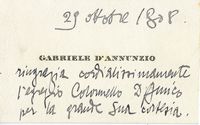 29 ottobre 1808.
GABRIELE D'ANNUNZIO
ringrazia cordialissimamente
l'egregio Colonnello D'Amico
per la grande Sua cortesia.